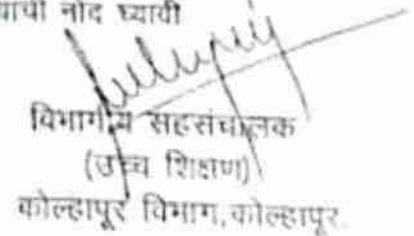 याची नोंद घ्यावी
विभागीय सहसंचालक
(उच्च शिक्षण)
कोल्हापूर विभाग, कोल्हापूर.